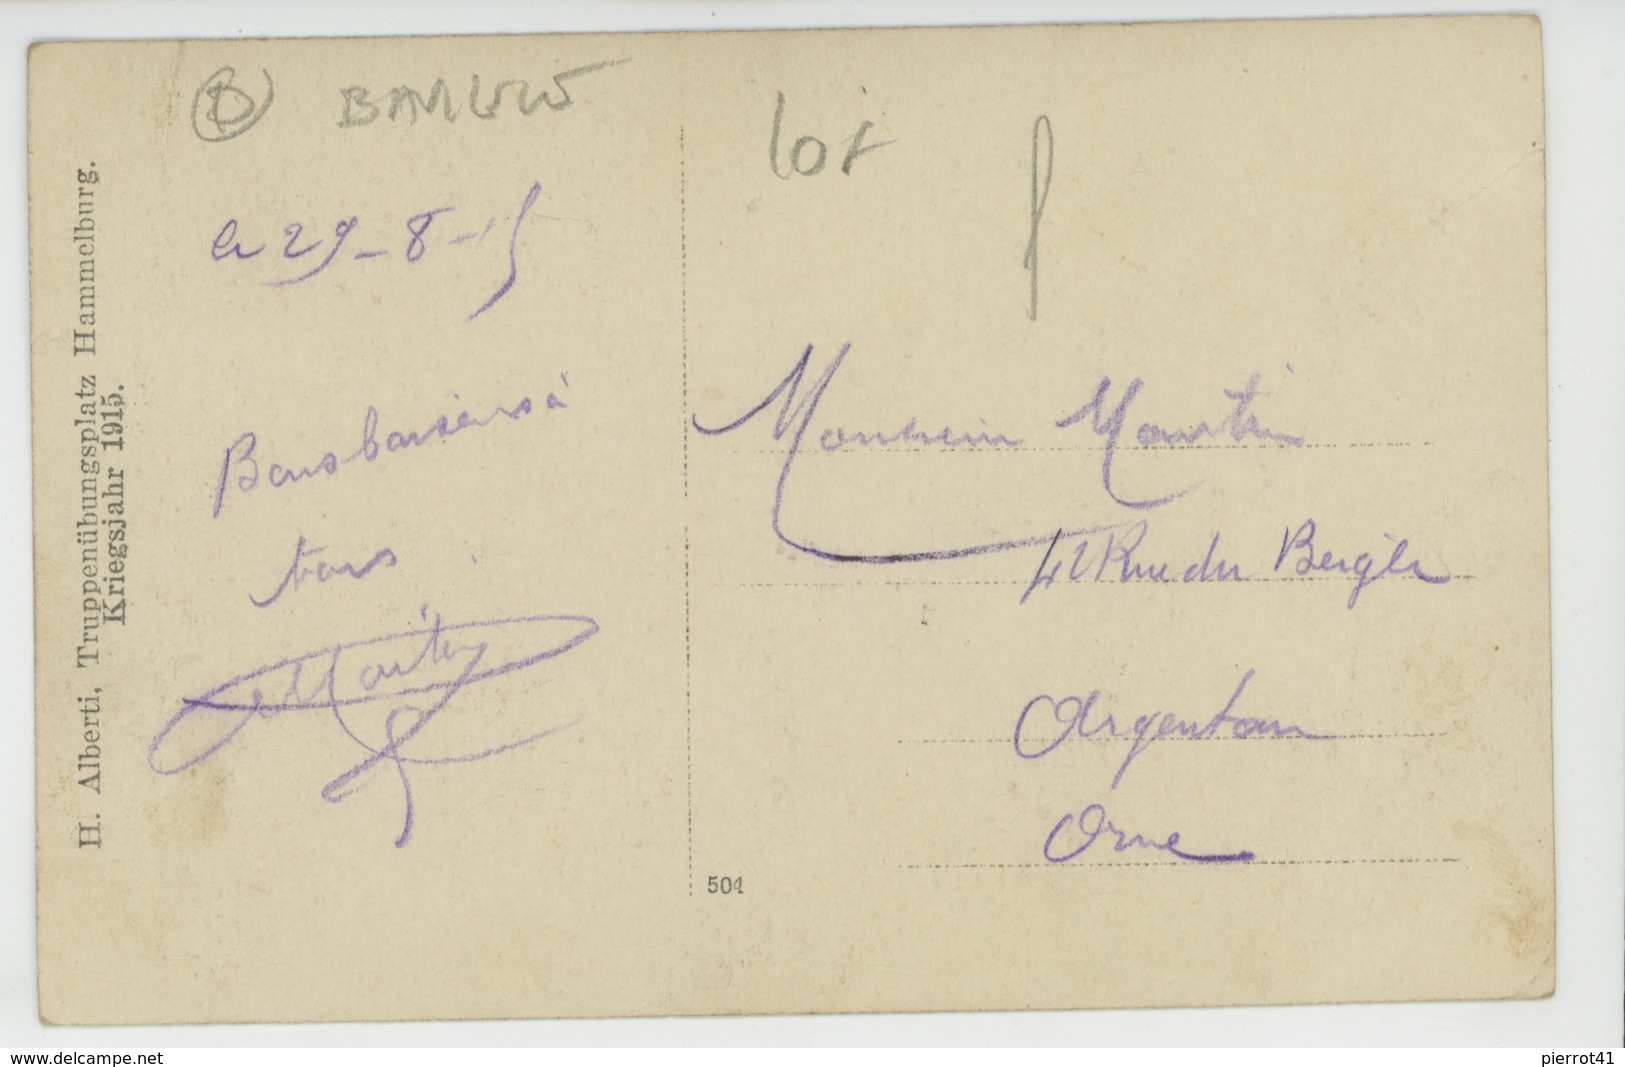 H. Alberti, Truppenübungsplatz Hammelburg.
Kriegsjahr 1915.
lot
le 29-8-15
Bons baisers à
tous
Martin
Monsieur Martin
42 Rue du Beigle
Argentan
Orne
504
www.delcampe.net
pierrot41